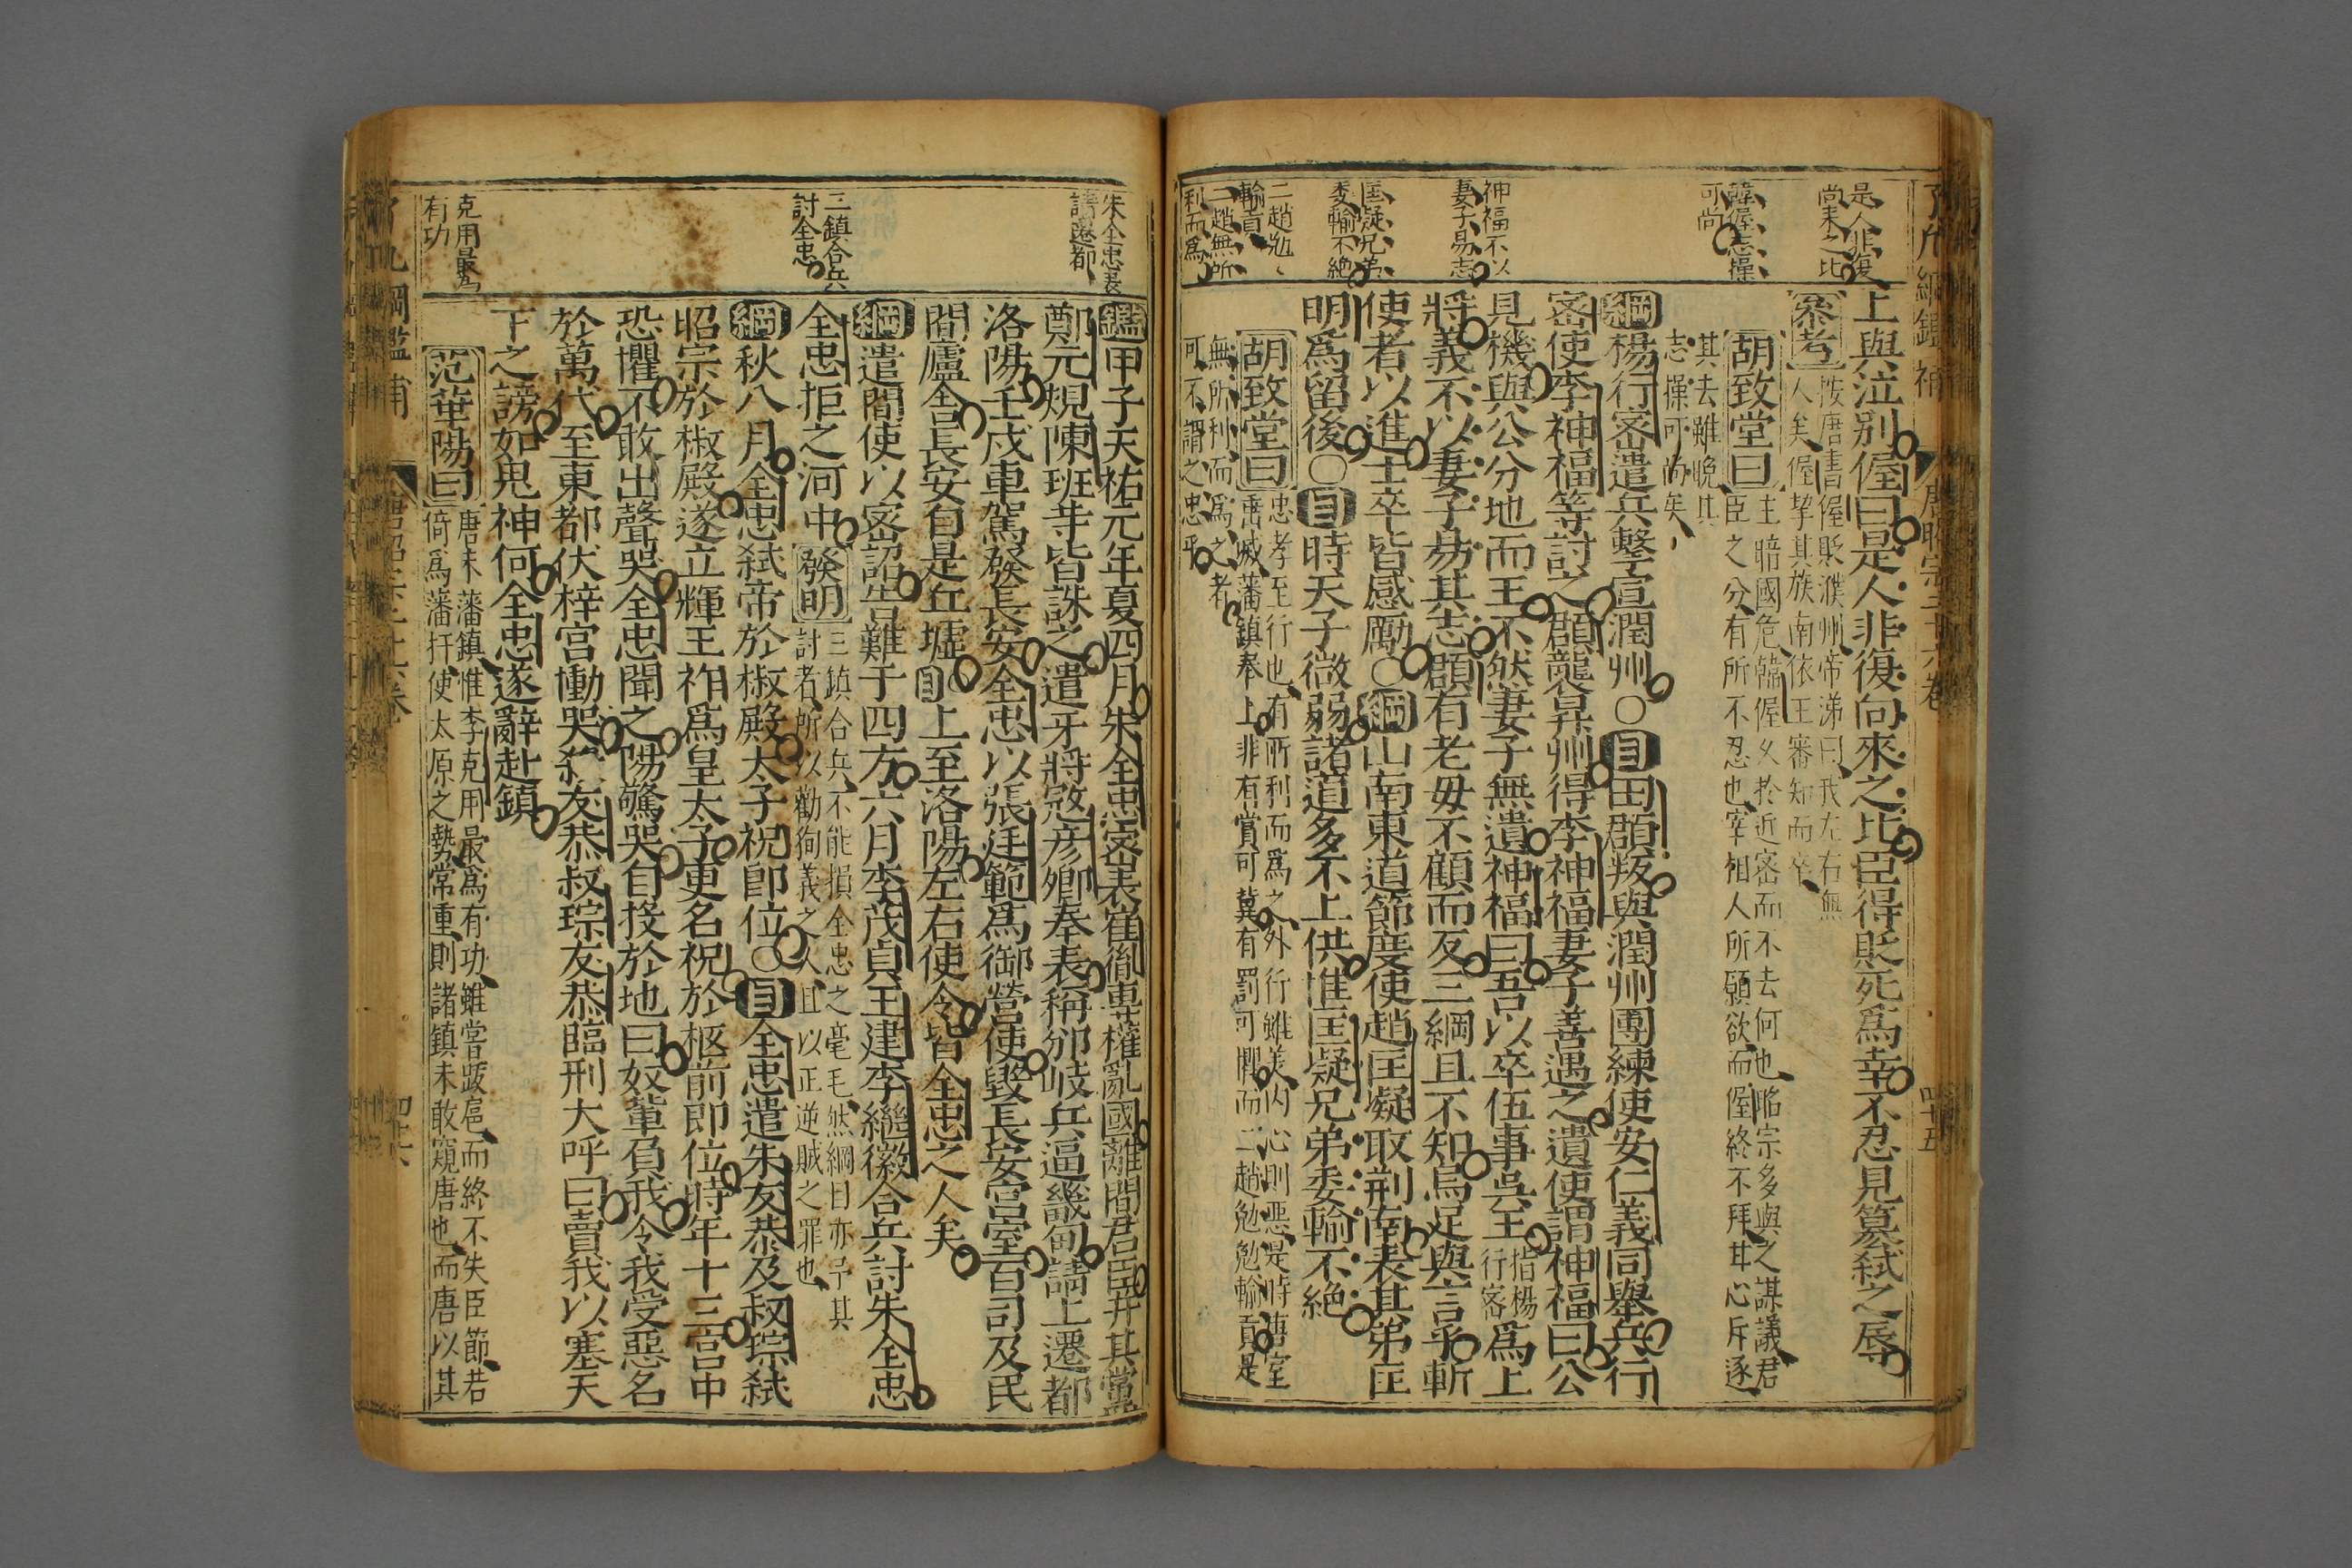 是人非復
尚来之比
韓偓志操
可尚
神福不以
妻子易志
匡凝兄弟
委輸不絶
二趙勉
輸貢
二趙無所
利而爲
上與泣别偓曰是人非復向來之比臣得貶死爲幸不忍見簒弑之辱
叅考
按唐書偓貶濮州帝涕曰我左右無
人矣偓挈其族南依王審知而卒
胡致堂曰
主暗國危韓偓久於近密而不去何也昭宗多與之謀議君
臣之分有所不忍也宰相人所願欲而偓終不拜其心斥逐
其去雖晚其
志操可尚矣
綱楊行密遣兵擊宣潤州〇目田頵叛與潤州團練使安仁義同舉兵行
密使李神福等討之頵襲昇州得李神福妻子善遇之遣使謂神福曰公
見機與公分地而王不然妻子無遺神福曰吾以卒伍事吳王指楊行密爲上
將義不以妻子易其志頵有老毋不顧而反三綱且不知烏足與言乎斬
使者以進士卒皆感勵〇綱山南東道節度使趙匡凝取荆南表其弟匡
明爲留後〇目時天子微弱諸道多不上供惟匡凝兄弟委輸不絶
胡致堂曰
忠孝至行也有所利而爲之外行雖美内心則惡是時唐室
旣滅藩鎮奉上非有賞可冀有罰可懼而二趙勉勉輸貢是
無所利而爲之者
可不謂之忠乎
唐昭宗二十六卷
四十五
朱全忠表
請遷都
三鎮合兵
討全忠
克用最爲
有功
鑑甲子天祐元年夏四月朱全忠密表崔胤專權亂國離間君臣并其黨
鄭元規陳班等皆誅之遣牙將寇彦卿奉表稱邠岐兵逼畿甸請上遷都
洛陽壬戌車駕發長安全忠以張廷範爲御營使毀長安宫室百司及民
間廬舍長安自是丘墟目上至洛陽左右使令皆全忠之人矣
綱遣間使以密詔告難于四方六月李茂貞王建李繼徽合兵討朱全忠
全忠拒之河中
發明
三鎮合兵不能損全忠之毫毛然綱目亦予其
討者所以勸徇義之人且以正逆賊之罪也
綱秋八月全忠弑帝於椒殿太子祝即位〇目全忠遣朱友恭及叔琮弑
昭宗於椒殿遂立輝王祚爲皇太子更名祝於柩前即位時年十三宫中
恐懼不敢出聲哭全忠聞之陽驚哭自投於地曰奴輩負我令我受惡名
於萬代至東都伏梓宫慟哭殺友恭叔琮友恭臨刑大呼曰賣我以塞天
下之謗如鬼神何全忠遂辭赴鎮
范華陽曰
唐末藩鎮惟李克用最爲有功雖嘗跋扈而終不失臣節若
倚爲藩扞使太原之勢常重則諸鎮未敢窺唐也而唐以其